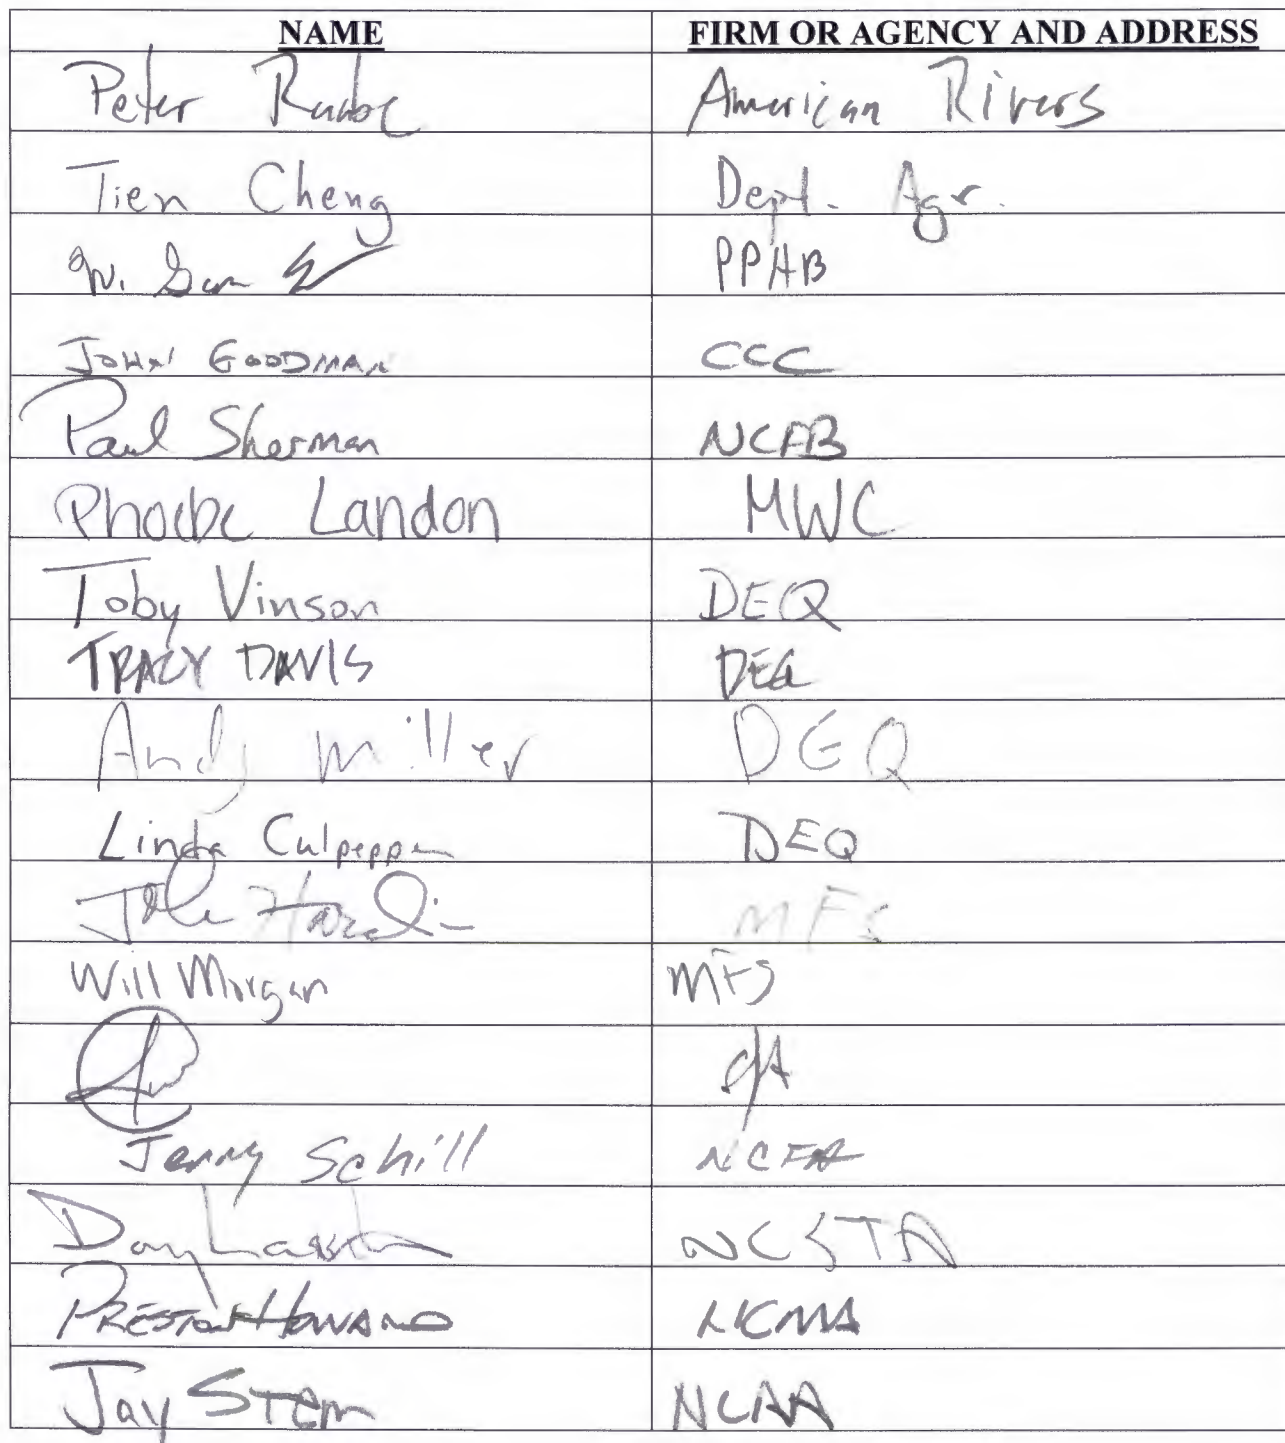 NAME FIRM OR AGENCY AND ADDRESS
Peter American Rivers
Tien Cheng Dept. Agr.
W. PPAB
JOHN GOODMAN CCC
Paul Sherman NCFB
Phoebe Landon MWC
Toby Vinson DEQ
TRACY DAVIS DEQ
Andy Miller DEQ
Linda Culpepper DEQ
Hardin MFS
Will Morgan MFS
Jerry Schill NCFA
Doug NCSTA
PRESTON HOWARD NCMA
Jay Stem NCAA